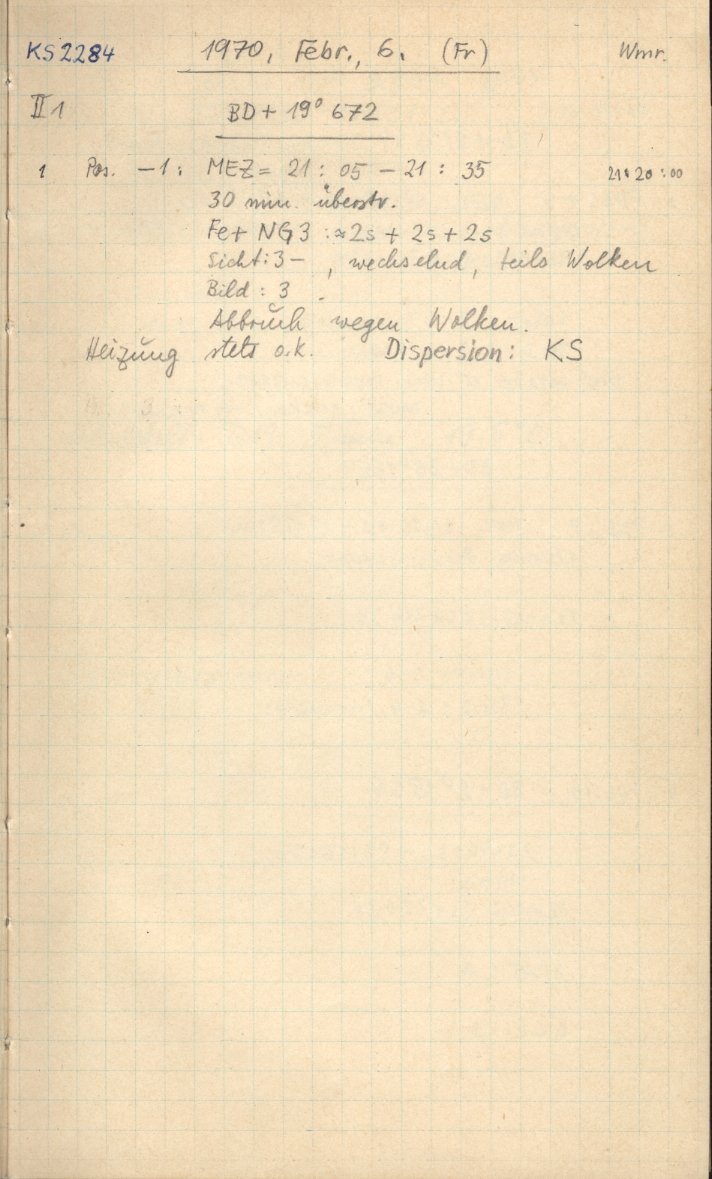 KS 2284 1970, Febr., 6. (Fr) Wmr.
II 1 BD + 19° 672
1 Pos. -1: MEZ = 21 : 05 - 21 : 35 21 : 20 : 00
30 min. überstr.
Fe + NG3 : ≈ 2s + 2s + 2s
Sicht: 3- , wechselnd, teils Wolken
Bild : 3
Abbruch wegen Wolken.
Heizung stets o.k. Dispersion: KS